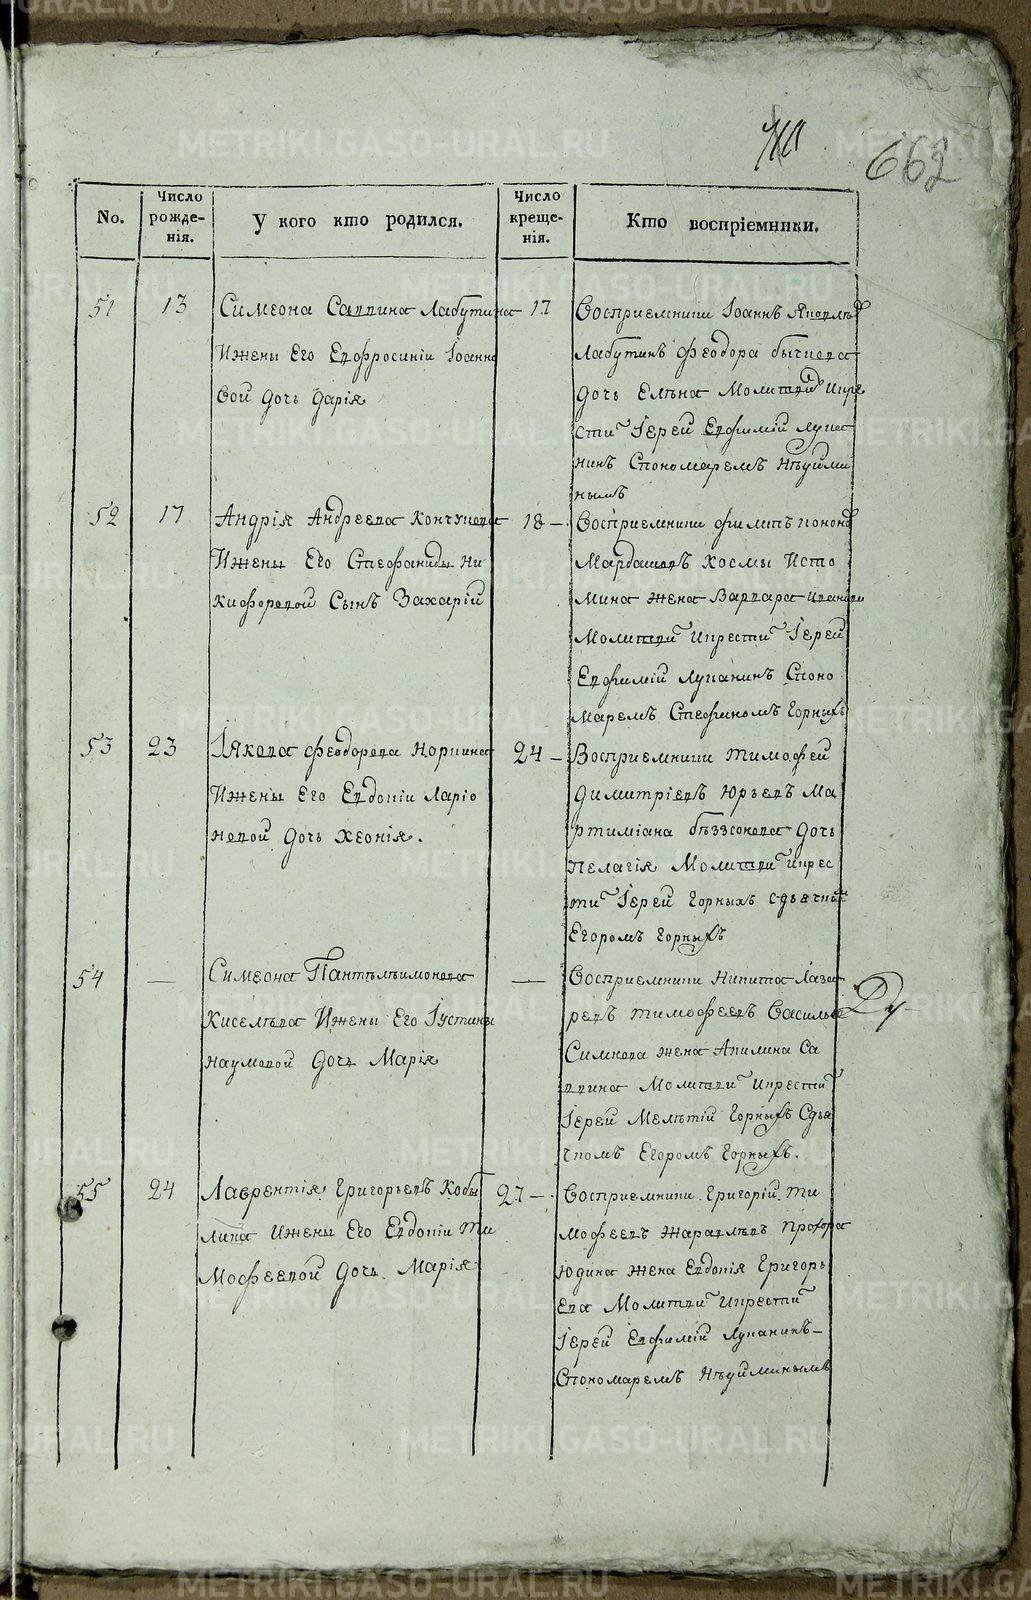 662
No.
Число рожде-нія.
У кого кто родился.
Число креще-нія.
Кто воспріемники.
51 13 Симеона Саввина Лабутина 17
Ижены Его Евфросиніи Іоанно
вой Дочь Дарія
Восприемники Іоаннъ Яковлевъ
Лабутинъ Феодора бычкова
Дочь Елѣна Молитвы Икре
сти Іерей Евфимій Лука
нинъ Спономаремъ Неуйми
нымъ
52 17 Андрія Андреева Кокчукова 18 -
Ижены Его Стефаниды Ни
кифоровой Сынъ Захарій
Восприемники Филипъ
Мардашовъ Космы Исто
мина жена Варвара Иванова
Молитвы Икрести Іерей
Евфимій Луканинъ Споно
маремъ Стефаномъ Горныхъ
53 23 Іякова Феодорова Норкина 24 -
Ижены Его Евдокіи Ларіо
новой Дочь Ксенія.
Восприемники Тимофей
Димитріевъ Юрьевъ Ма
ртиміана бѣззонова Дочь
Пелагія Молитвы Икрес
ти Іерей Горныхъ сдьячком
Егоромъ Горныхъ
54 — Симеона Пантѣлѣимонова —
Киселѣва Ижены Его Іустины
Наумовой Дочь Марія
Восприемники Никита Лаза
ревъ Тимофеевъ Василья
Симкова жена Акилина Са
ввина Молитвы Икрести
Іерей Мелѣтій Горныхъ Сдья
чкомъ Егоромъ Горныхъ.
55 24 Лаврентія Григорьевъ Кобы 27 -
лина Ижены Его Евдокіи Ти
мофеевой Дочь Марія
Восприемники Григорій Ти
мофеевъ Жаравлевъ Прохора
Юдина жена Евдокія Григорь
ева Молитвы Икрести
Іерей Евфимій Луканинъ-
Спономаремъ Неуйминымъ
METRIKI.GASO-URAL.RU